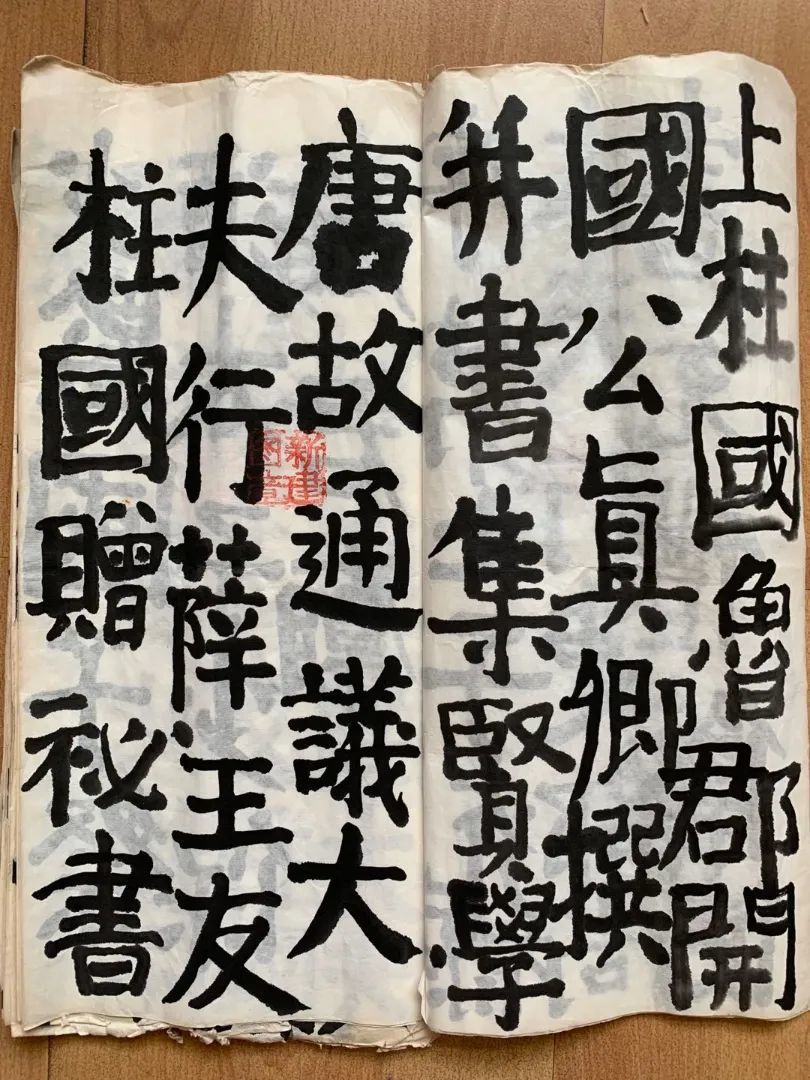 上柱國魯郡開
國公眞卿撰
并書集賢學
唐故通議大
夫行薛王友
柱國贈祕書
新建